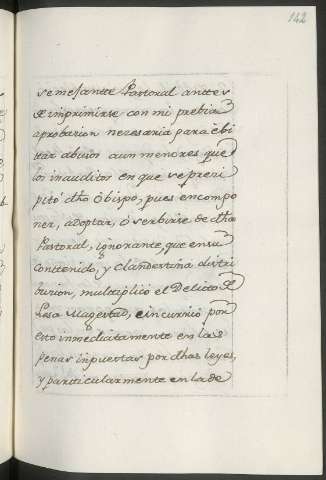 142
semejantte Pastoral anttes
de imprimirse con mi prebia
aprobacion necesaria para ebi
tar abusos aun menores que
los inauditos en que se preci
pitó dho Obispo, pues en compo
ner, adoptar, ó serbirse de dha
Pastoral, ignorante, que en su
Conttenido, y Clandestina distri
bucion, multiplicó el Delicto de
Lesa Magestad, e incurrió por
esto inmediatamente en las
penas inpuestas por dhas leyes,
y particularmente en la de